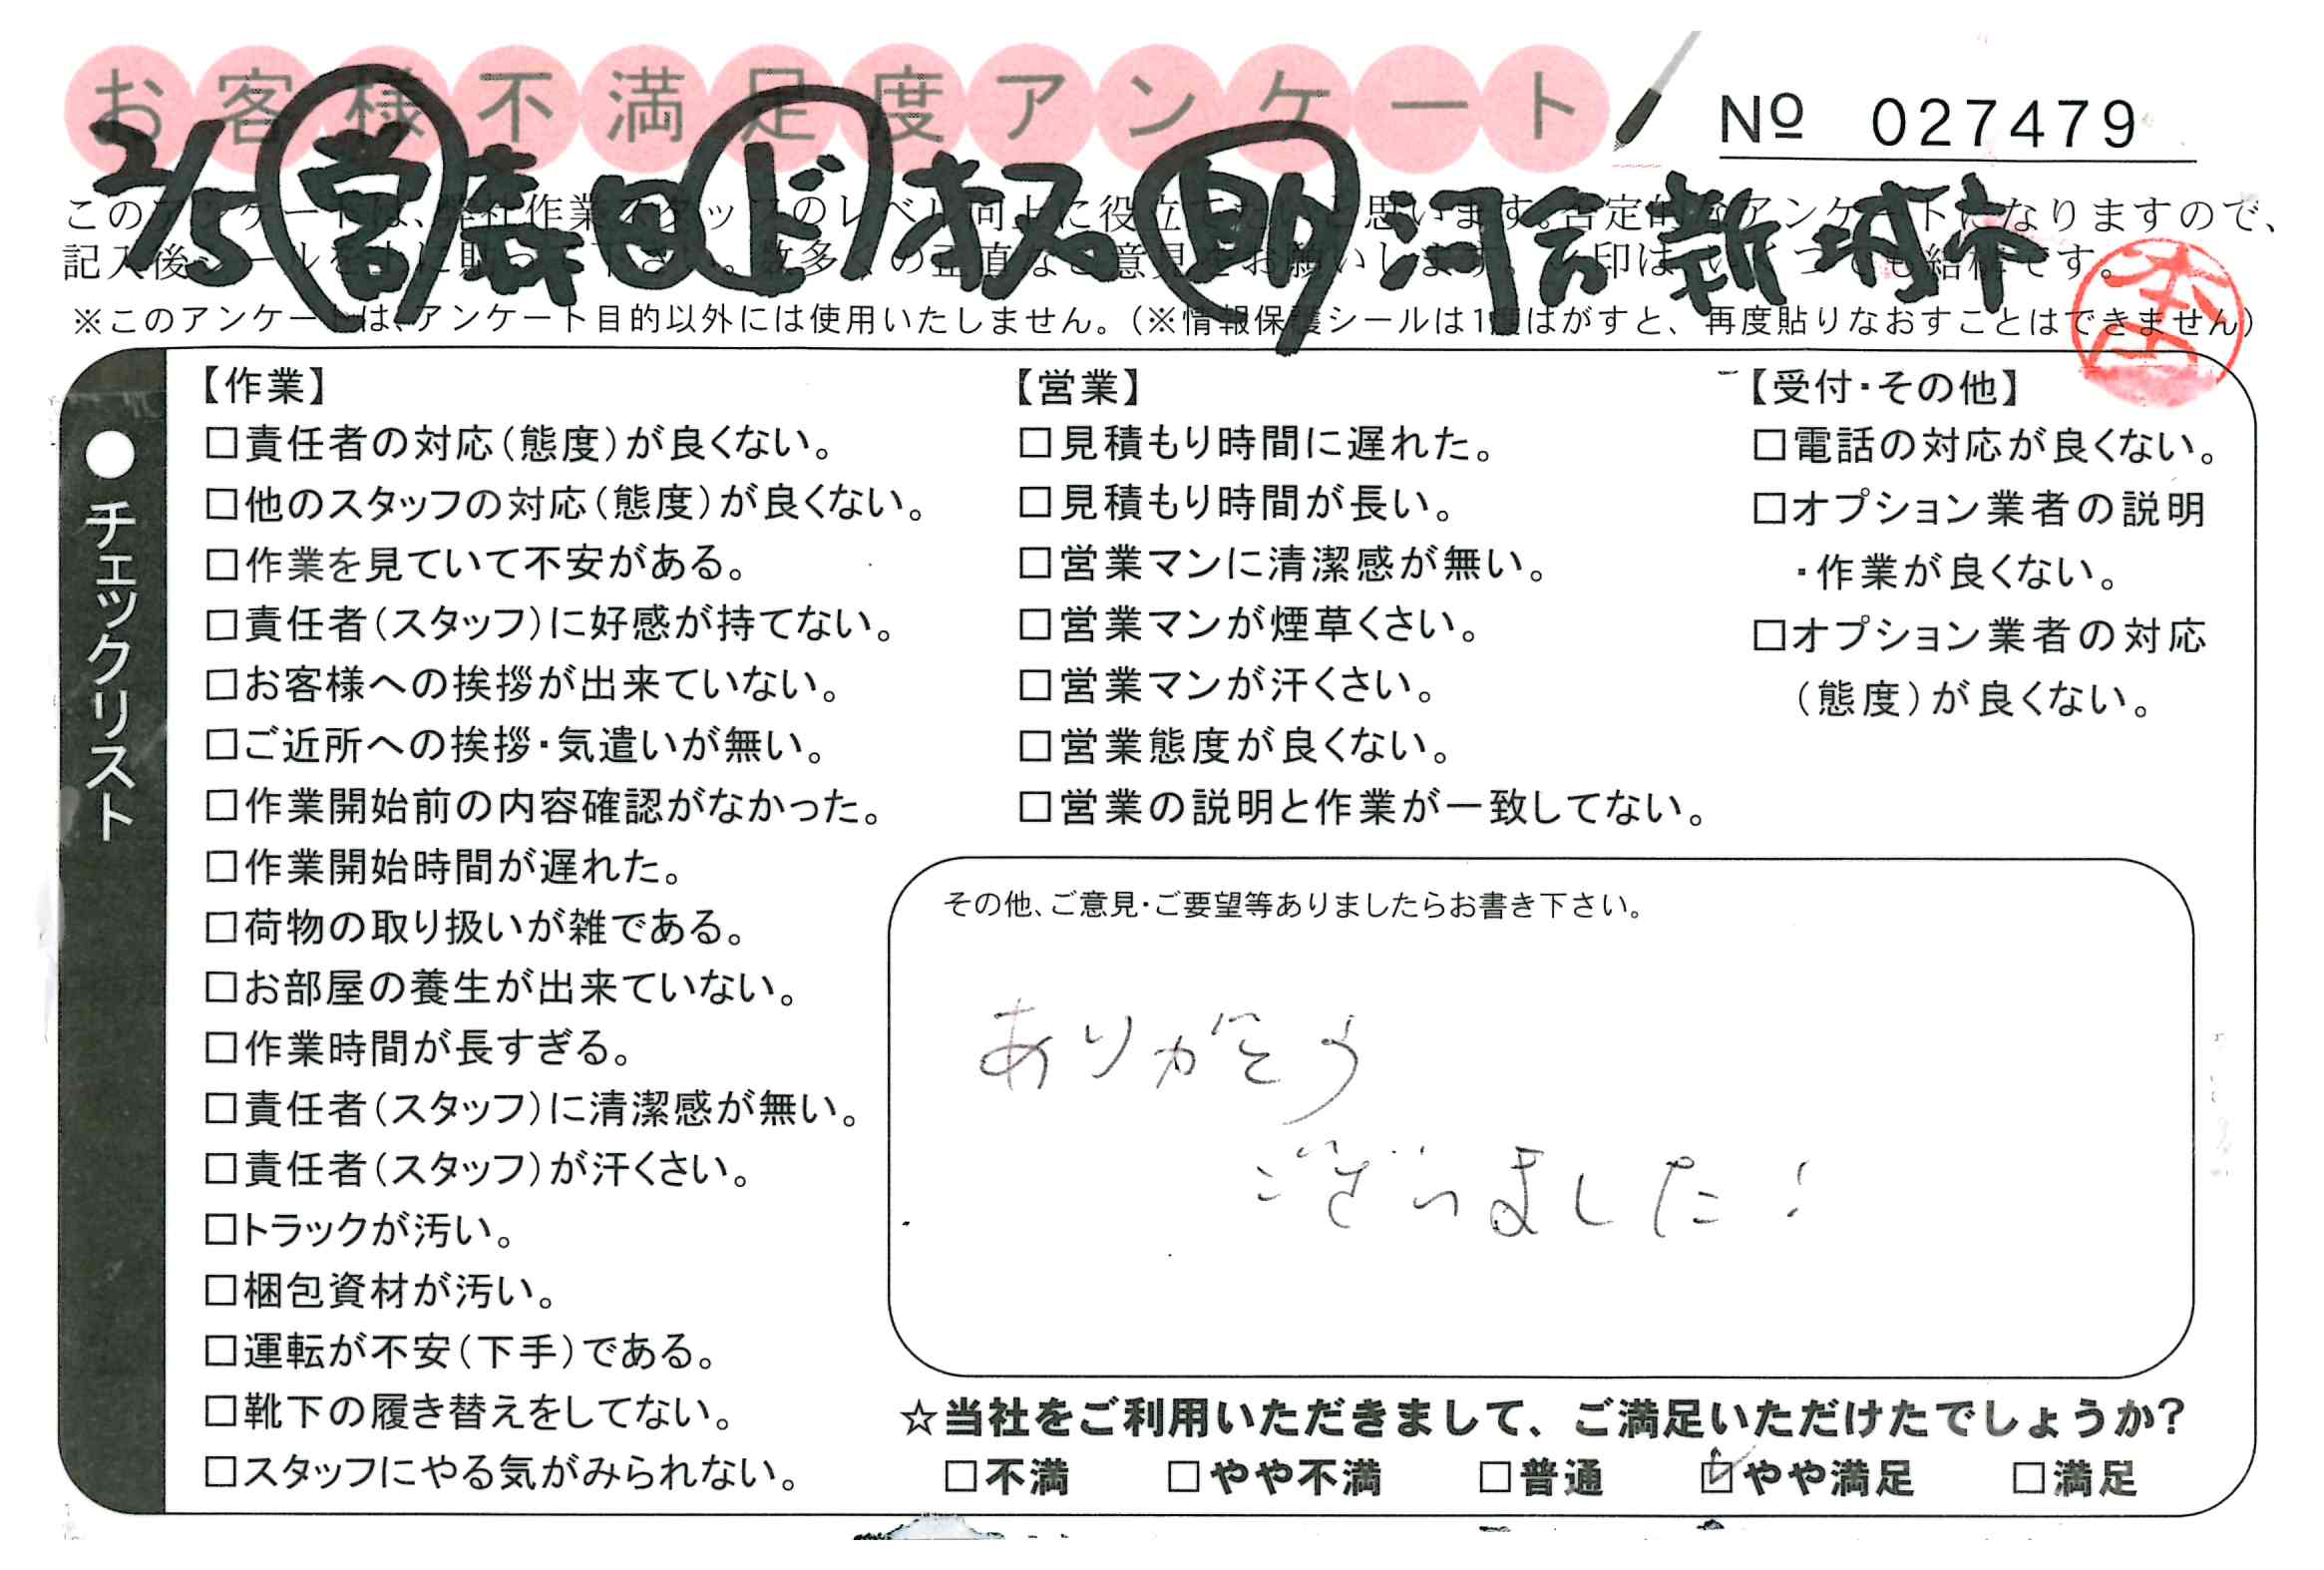 お客様不満足度アンケート
No 027479
2/5 営 森田 ド 拓 助 河合 新城市
※このアンケートは、アンケート目的以外には使用いたしません。(※情報保護シールは1度はがすと、再度貼りなおすことはできません)
●チェックリスト
【作業】
□責任者の対応(態度)が良くない。
□他のスタッフの対応(態度)が良くない。
□作業を見ていて不安がある。
□責任者(スタッフ)に好感が持てない。
□お客様への挨拶が出来ていない。
□ご近所への挨拶・気遣いが無い。
□作業開始前の内容確認がなかった。
□作業開始時間が遅れた。
□荷物の取り扱いが雑である。
□お部屋の養生が出来ていない。
□作業時間が長すぎる。
□責任者(スタッフ)に清潔感が無い。
□責任者(スタッフ)が汗くさい。
□トラックが汚い。
□梱包資材が汚い。
□運転が不安(下手)である。
□靴下の履き替えをしてない。
□スタッフにやる気がみられない。
【営業】
□見積もり時間に遅れた。
□見積もり時間が長い。
□営業マンに清潔感が無い。
□営業マンが煙草くさい。
□営業マンが汗くさい。
□営業態度が良くない。
□営業の説明と作業が一致してない。
【受付・その他】
□電話の対応が良くない。
□オプション業者の説明
・作業が良くない。
□オプション業者の対応
(態度)が良くない。
その他、ご意見・ご要望等ありましたらお書き下さい。
ありがとう
ございました!
☆当社をご利用いただきまして、ご満足いただけたでしょうか?
□不満 □やや不満 □普通 ☑やや満足 □満足